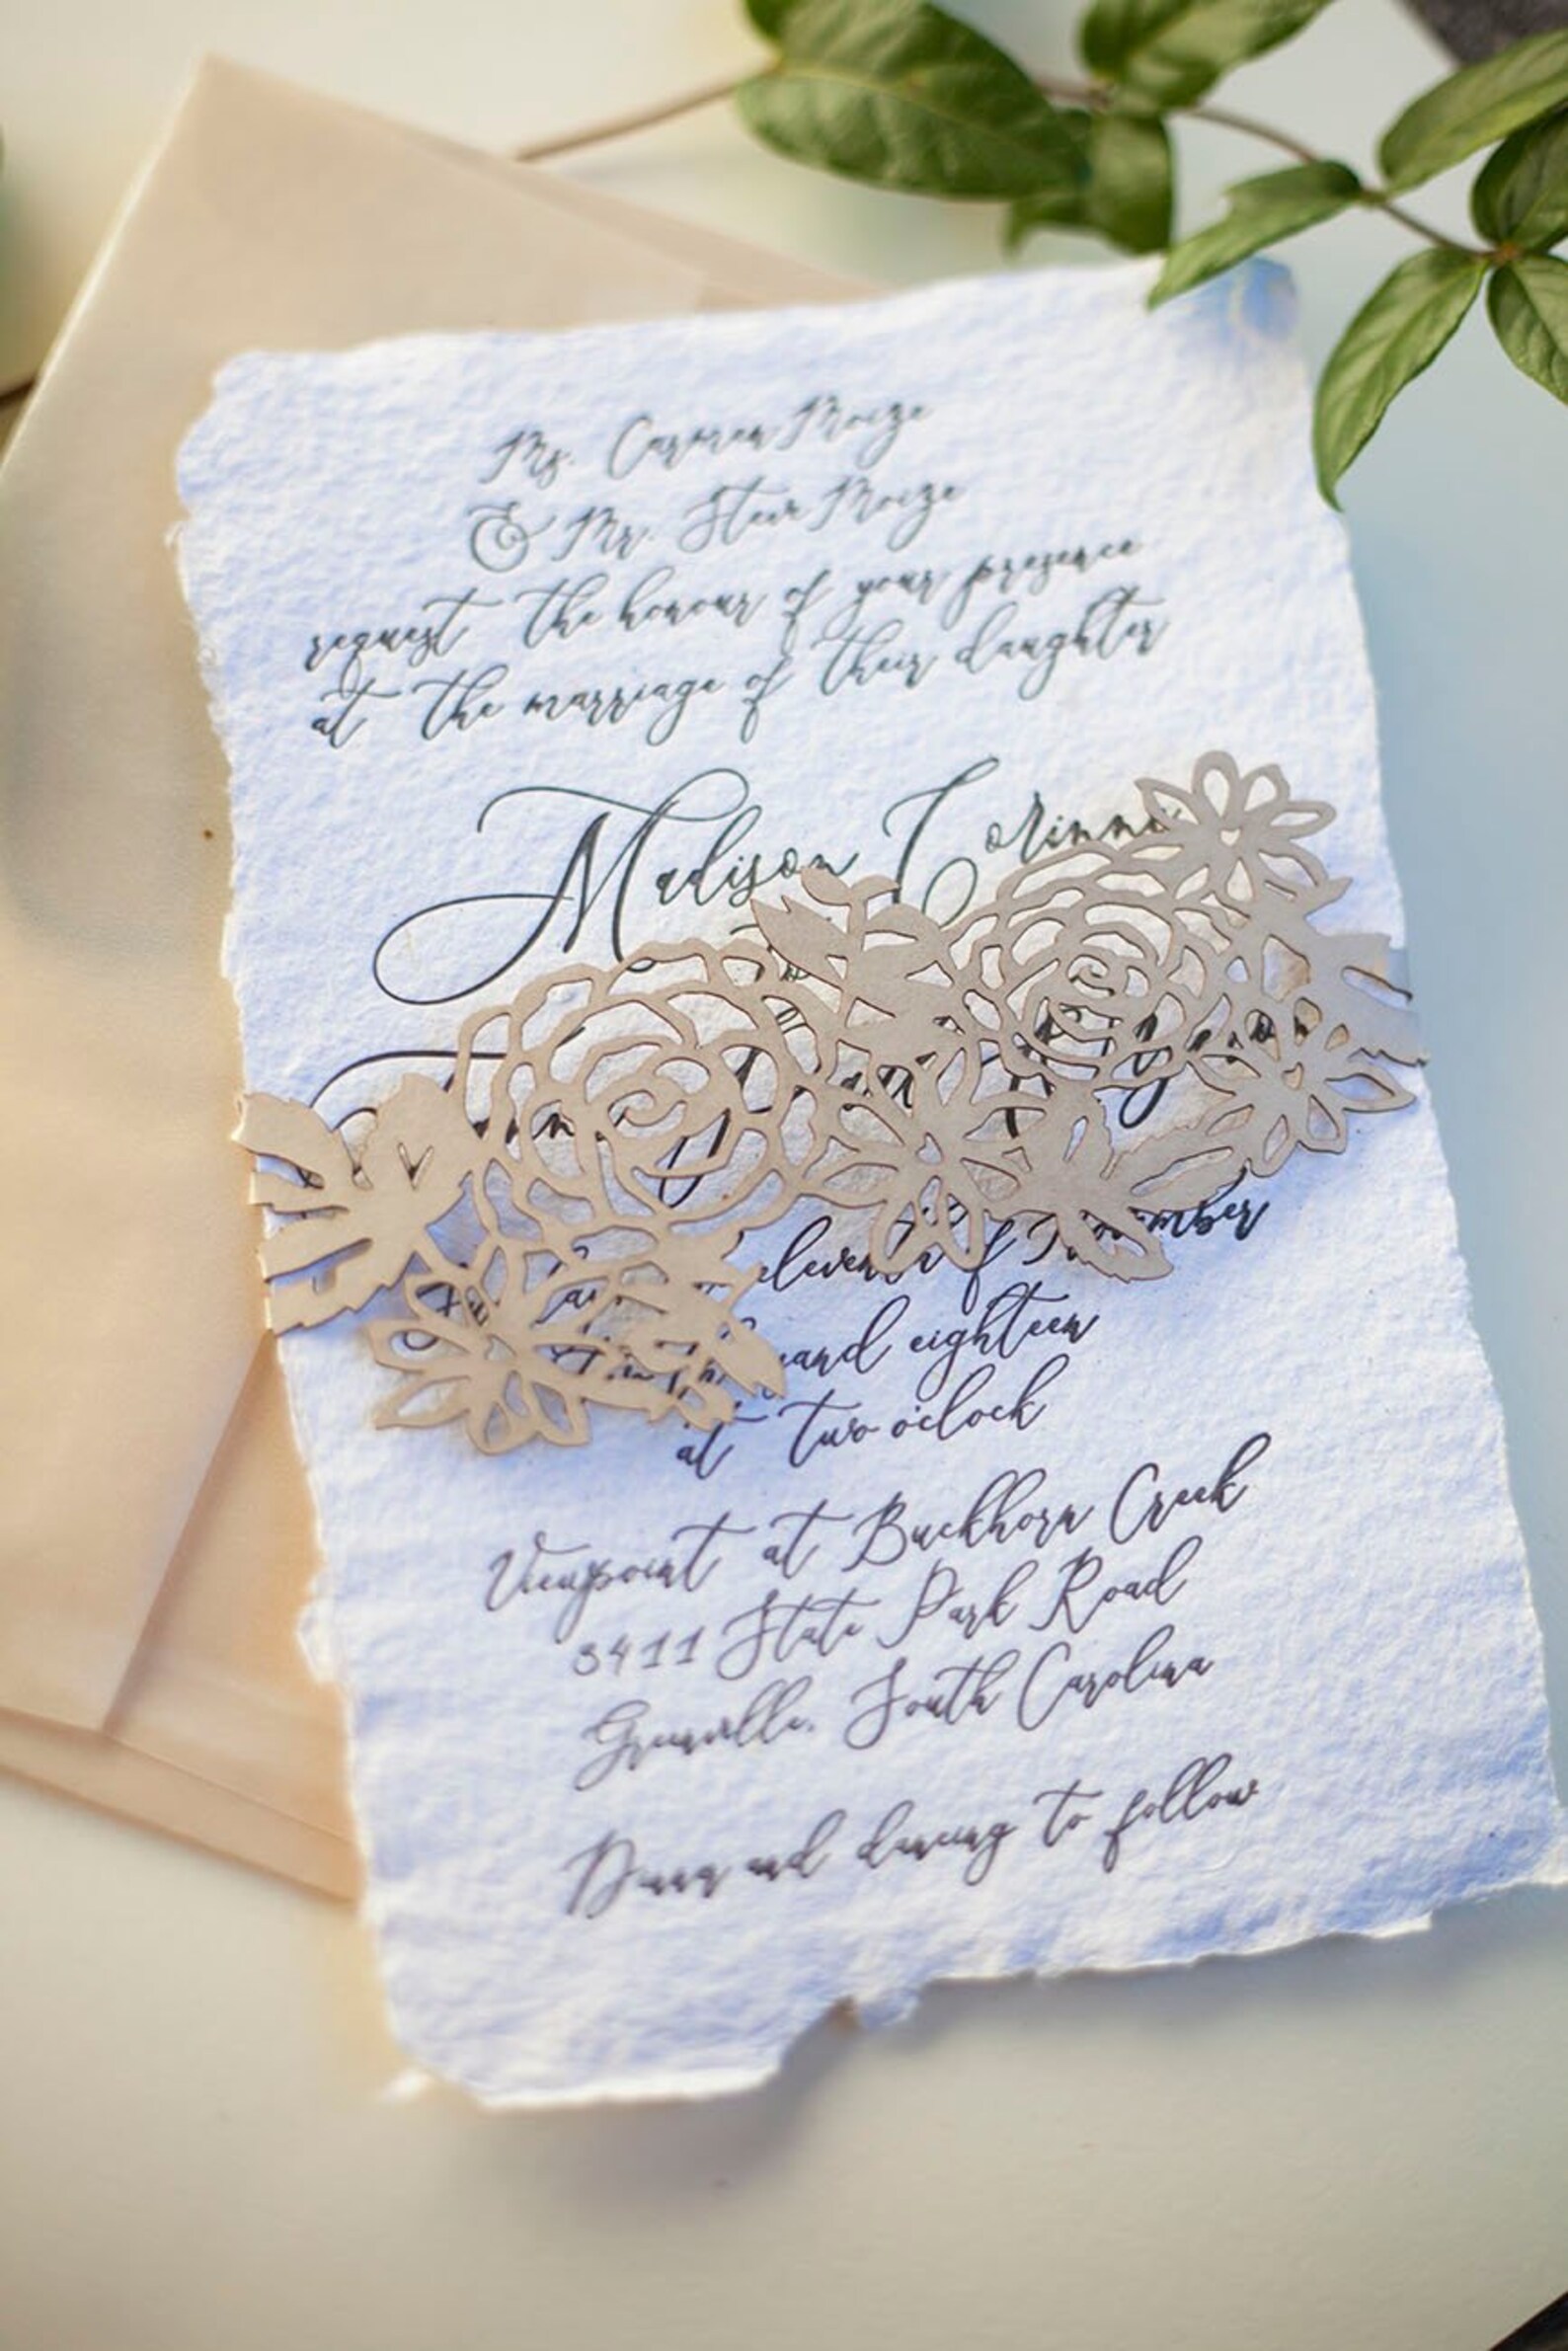 Ms. Carmen Moize
& Mr. Steve Moize
request the honour of your presence
at the marriage of their daughter
Madison Corinne
to
eleventh of November
eighteen
at two o'clock
Viewpoint at Buckhorn Creek
3411 State Park Road
Greenville, South Carolina
Dinner and dancing to follow